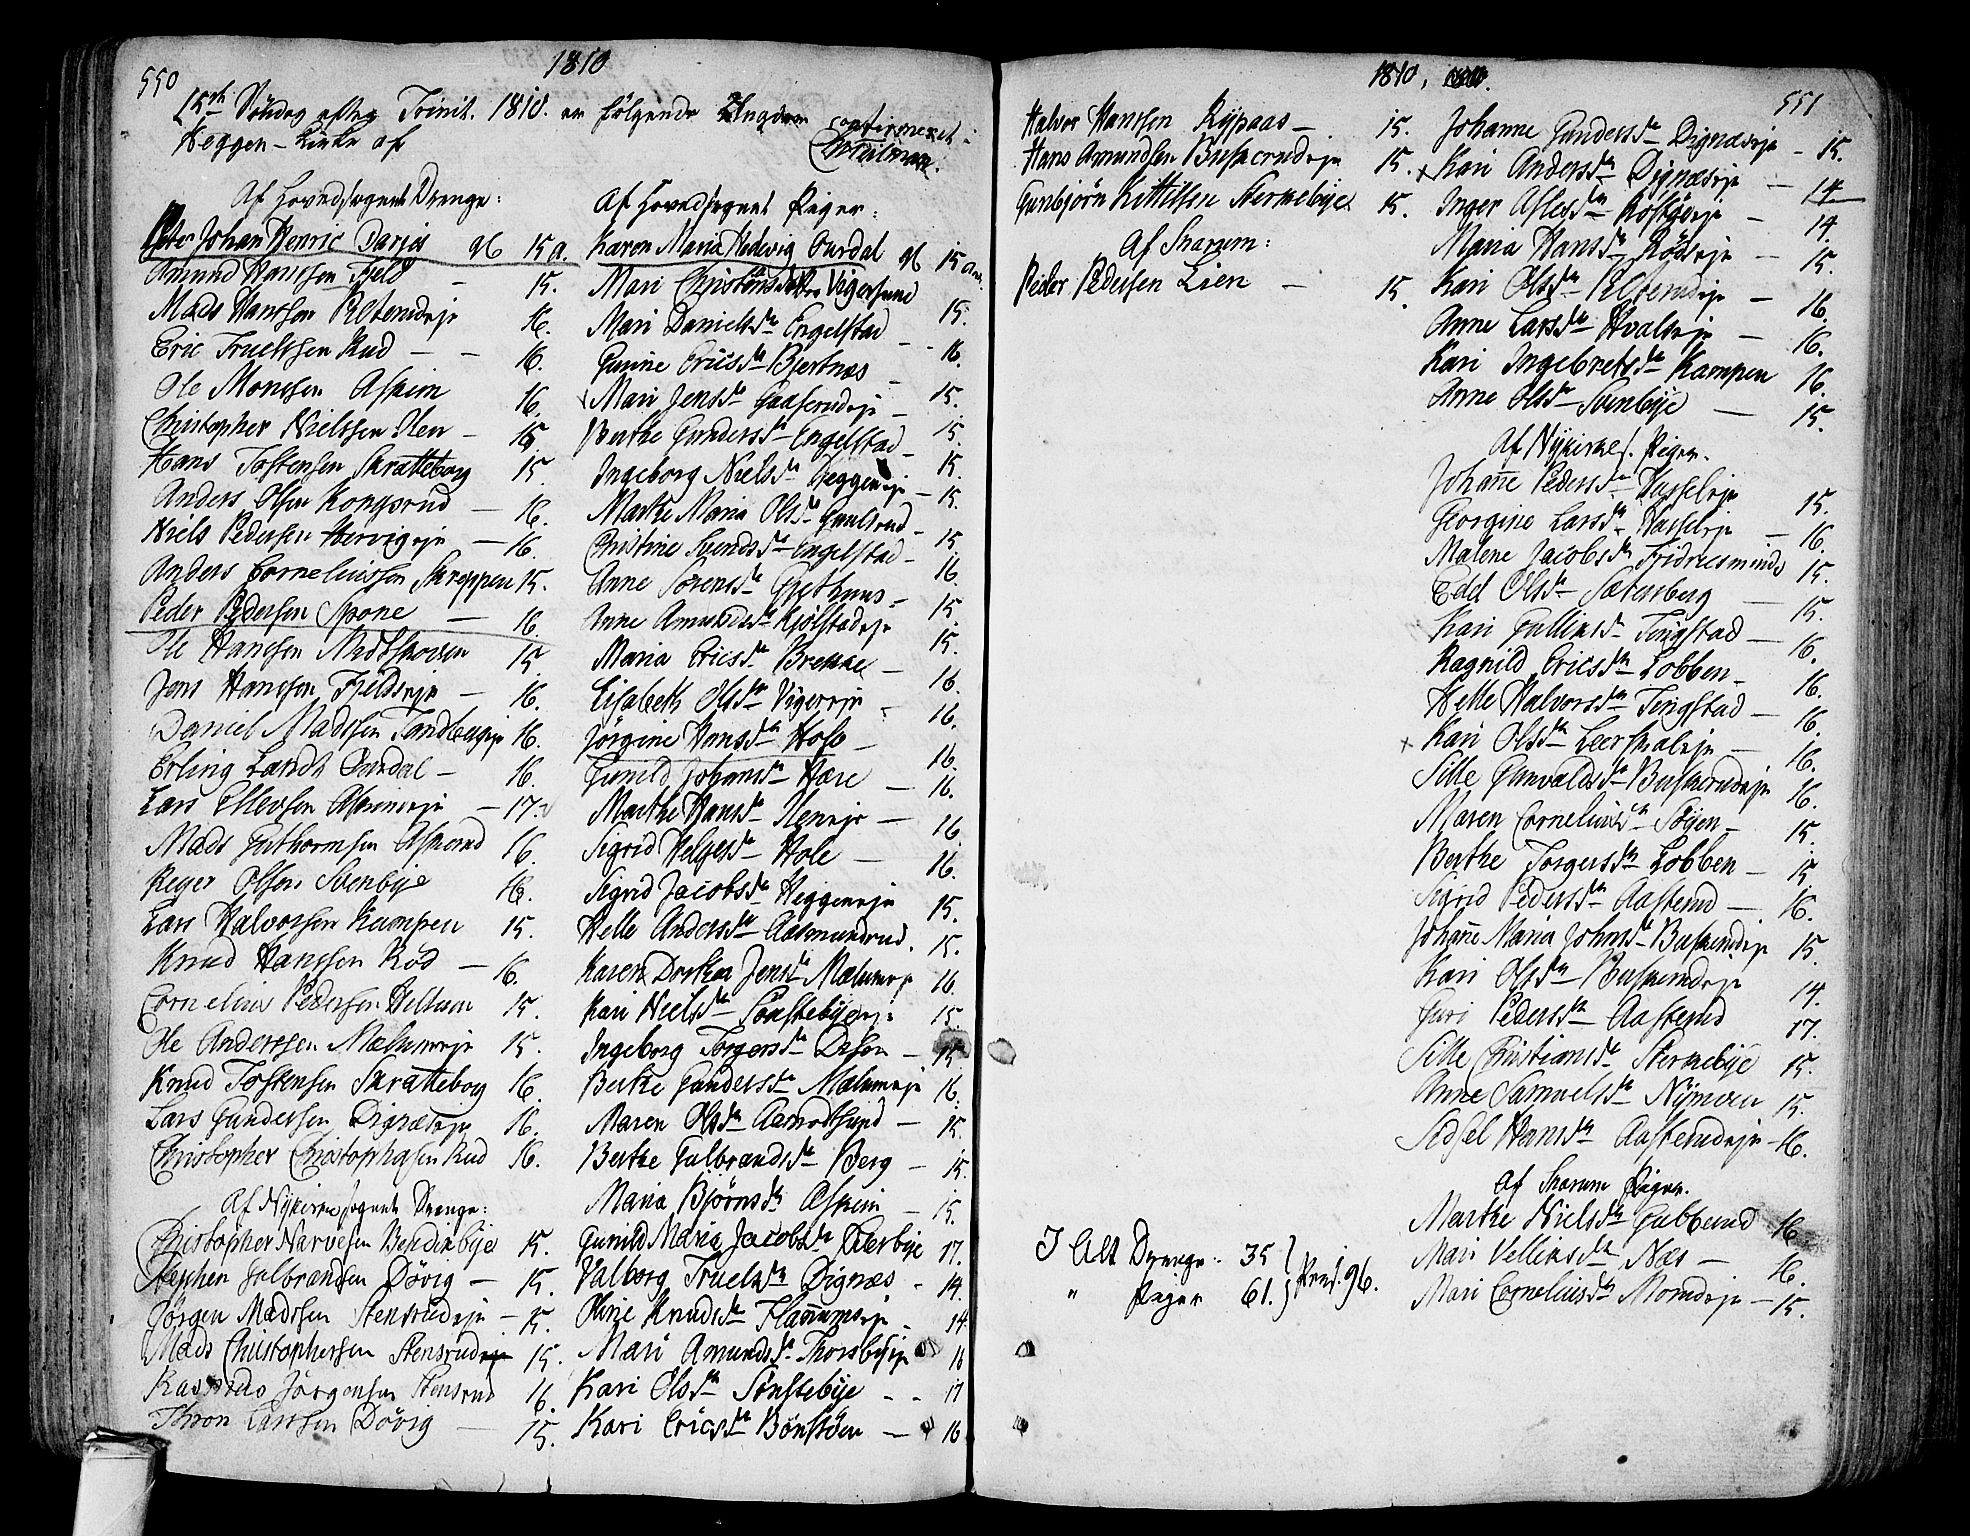 550
1810
15de Söndag efter Trinit. 1810. er følgende Ungdom confirmeret i
Heggen Kirke af
Af Hovedsognet Drenge:
Peter Johan Henric Darjes 15 a.
Amund Hanssen Fjeld - 15.
Mads Hanssen 16.
Eric Truelssen Rud - - 16.
Ole Monssen Askim 16.
Christopher Nielssen Hen - 15
Hans Tostensen Skratteborg 15.
Anders Olsen Kongsrud - 16.
Niels Pedersen Hervigeje - 16.
Anders Corneliussen Skreppen 15.
Peder Pedersen Spone - 16.
Ole Hanssen 15
Jens Hanssen Fjeldseje - 16.
Daniel Madssen Tandbergeje 16.
Erling Landt Ourdal - 16.
Lars Ellevsen Askimeje - 17.
Mads Guthormsen Asmorud 16.
Reyer Olssen Svenbye 16.
Lars Halvorssen Kampen 15.
Knud Hanssen Röd - 16.
Cornelius Pedersen Hellum 15.
Ole Anderssen Mælumeje 15.
Knud Tostensen Skratteborg 16.
Lars Gunderssen Digræseje 16.
Christopher Christophersen Rud 16.
Af Nykirke sognet Drenge:
Christopher Narvesen Bendikbye 15.
Stephen Gulbrandsen Dövig - 15.
Jörgen Madssen Stensrudeje - 15.
Mads Christophersen Stensrud 15.
Rasmus Jörgensen Stensrud 16.
Thron Larssen Dövig - 15.
Af Hovedsognet Piger:
Karen Maria Hedevig Ourdal 15 an.
Mari Christensdr Vigersund 15.
Mari Danielsdr Engelstad - 16.
Gunne Ericsdr Bjertnæs - 15.
Mari Jensdr Gaaserudeje - 15.
Berthe Gundersdr Engelstad - 15.
Ingeborg Nielsdr Heggeneje - 15.
Marthe Maria Olsdr Gunlsrud - 15
Christine Svendsdr Engelstad - 16.
Anne Sörensdr Gjethuus - 15.
Anne Amundsdr Kjölstadeje 15.
Maria Ericsdr Brekke - 16.
Lisabeth Olsdr Vigereje - 16.
Jörgine Hansdr Hole - 16.
Gunild Johansdr Hære - 16.
Marthe Hansdr Heneje - 16
Sigrid Helgesdr Hole - 16.
Sigrid Jacobsdr Heggeneje 15.
Helle Andersdr Aasmundrud. 15.
Karen Dorthea Jensdr Mælumeje 16
Kari Nielsdr Sönstebyeeje 15
Ingeborg Torgersdr Disen - 15
Berthe Gundersdr Mælumeje 16.
Maren Olsdr Aamodtsund - 15.
Berthe Gulbrandsdr Berg - 15.
Maria Björnsdr Askim - 15.
Gunild Maria Jacobsdr Elerbye 17.
Valborg Truelsdr Digræs - 14.
Oline Knudsdr Flannumeje - 14
Mari Amundsdr Thorsbyeje 16
Kari Olsdr Sönstebye - - 17
Kari Ericsdr Bönstöen - 16
1810,
551
Halvor Hanssen Rypaas - 15.
Hans Amundsen Buskerudeje 15.
Gunbjörn Kittilsen Stermebye 15.
Af Snarum:
Peder Pedersen Lien - 15.
I Alt Drenge: 35
" Piger 61. Pers. 96.
Johanne Gundersdr Digræseje - 15.
Kari Andersdr Digræseje - 14
Inger Aslesdr - 14.
Maria Hansdr Rödseje - 15.
Kari Olsdr - 16.
Anne Larsdr Hvalseje - 16.
Kari Ingebretsdr Kampen 16.
Anne Olsdr Svenbye - 15.
Af Nykirkes. Piger.
Johanne Pedersdr Hasseleje 15.
Georgine Larsdr Hasseleje - 16.
Malene Jacobsdr Fridricsminde 15.
Edel Olsdr Sætersberg - 15.
Kari Gullicsdr Tingstad - 16.
Ragnild Ericsdr Lobben - 16.
Helle Halvorsdr Tingstad - 16.
Kari Olsdr Leerskaleje - 16.
Sille Gunvaldsdr Buskerudeje 16.
Maren Corneliusdr Stöjen - 15.
Berthe Torgersdr Lobben - 15
Sigrid Pedersdr Aasterud - 16.
Johanne Maria Johnsdr Buskerudeje 15.
Kari Olsdr Buskerudeje 14.
Guri Pedersdr Aasterud 17.
Sille Christiansdr Stermebye 15.
Anne Samuelsdr Nymoen 15.
Sidsel Hansdr Aasterudeje - 16.
Af Snarum Piger.
Marthe Nielsdr Gubberud 16.
Mari Velliusdr Næs - 16.
Mari Corneliusdr Moendeje - 15.